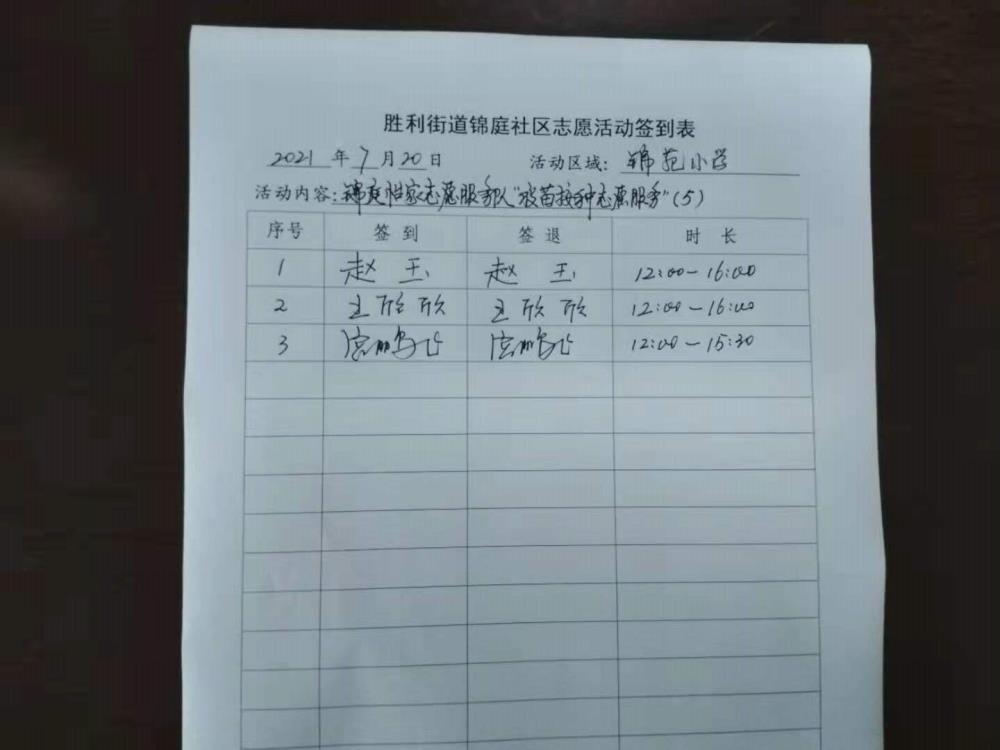 胜利街道锦庭社区志愿活动签到表
2021 年 7 月 20 日 活动区域: 锦苑小学
活动内容:锦庭怡家志愿服务队"疫苗接种志愿服务"(5)
序号 签到 签退 时长
1 赵玉 赵玉 12:00-16:00
2 王欣欣 王欣欣 12:00-16:00
3 12:00-15:30